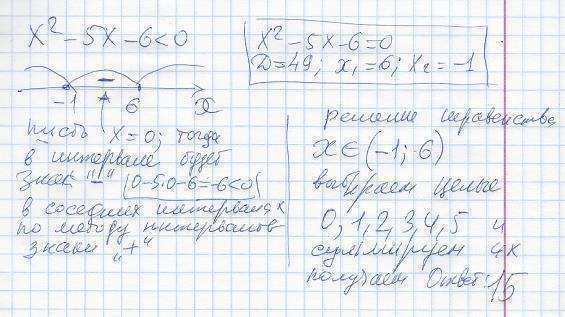 x² - 5x - 6 < 0
x² - 5x - 6 = 0
D = 49; x₁ = 6; x₂ = -1
- 
-1 6 x
пусть x = 0; тогда
в интервале будет
знак "-" (0-5·0-6=-6<0)
в соседних интервалах
по методу интервалов
знаки "+"
решение неравенства
x ∈ (-1; 6)
выбираем целые
0, 1, 2, 3, 4, 5 и
суммируем их
получаем Ответ: 15